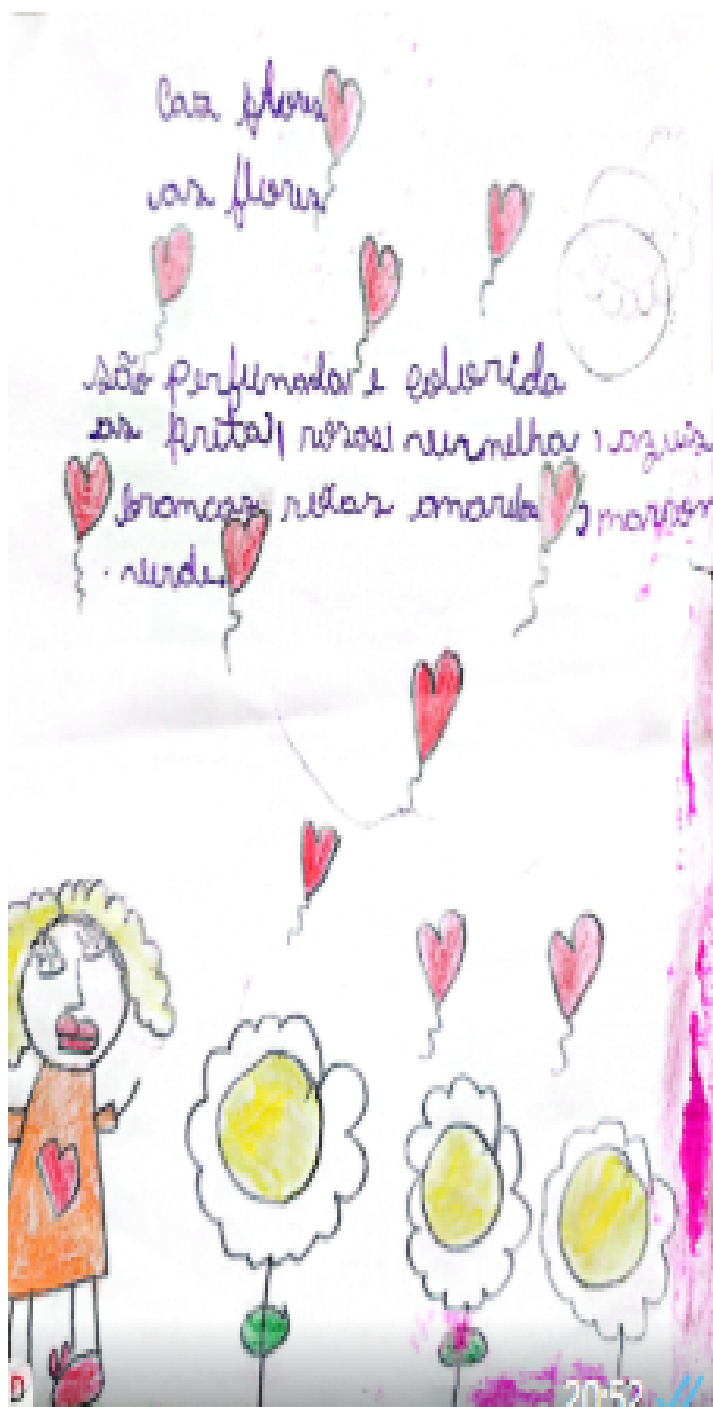 as flores
são perfumadas e colorida
as pretas, rosas vermelha, azuis
brancas, roxas amarela, marrom
verde
20:52